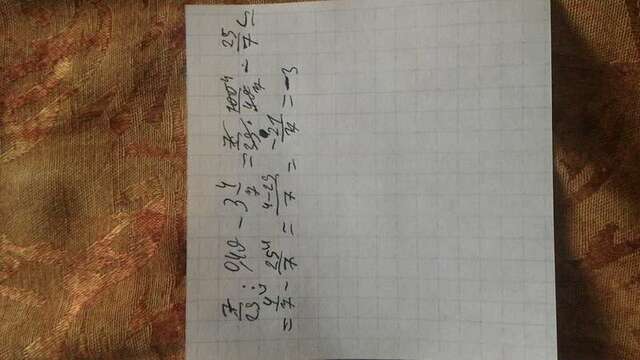 7/25 : 0,49 - 3 4/7 = 7/25 · 100/49 - 25/7 =
= 4/7 - 25/7 = 4-25/7 = -21/7 = -3